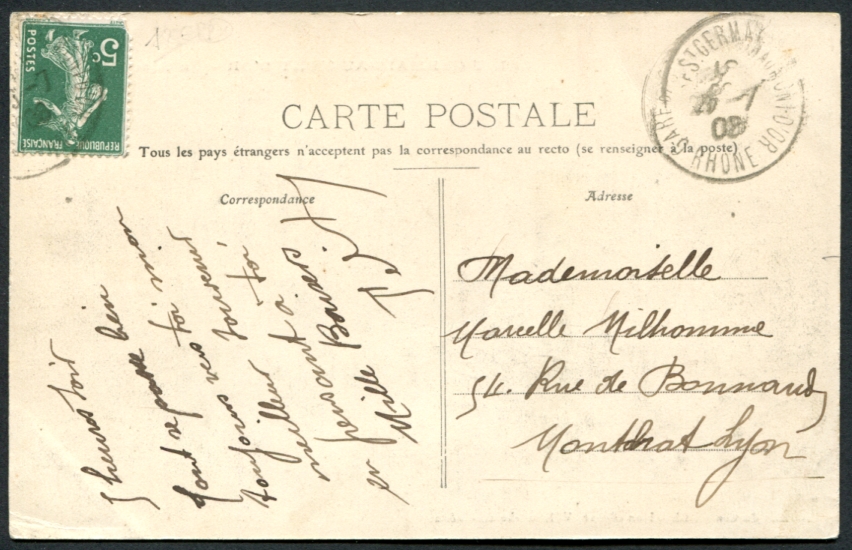 5c
POSTES
REPUBLIQUE FRANÇAISE
CARTE POSTALE
Tous les pays étrangers n'acceptent pas la correspondance au recto (se renseigner à la poste)
Correspondance
5 heures soir
tout se passe bien
toi mon
toujours vers
souvenir
meilleur à toi
en pensant à
Mille Baisers
Adresse
Mademoiselle
Marcelle Milhomme
54. Rue de Bonnand
Montchat Lyon
GARE DE ST GERMAIN AU MONT-D'OR
RHONE
08